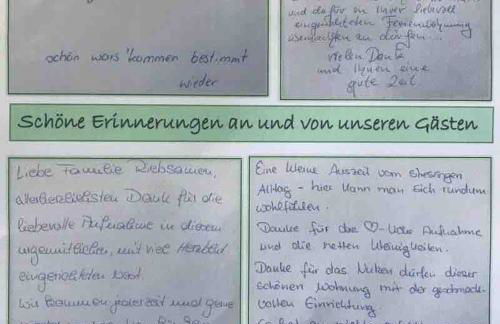 und dafür in Ihrer liebevoll
eingerichteten Ferienwohnung
zu dürfen...
vielen Dank
und Ihnen eine
gute Zeit
schön wars 'kommen bestimmt
wieder
Schöne Erinnerungen an und von unseren Gästen
Liebe Familie Riebsamen,
allerherzlichsten Dank für die
liebevolle Aufnahme in diesem
urgemütlichen, mit viel Herzblut
eingerichteten Nest.
Wir kommen jederzeit und gerne
Eine kleine Auszeit vom stressigen
Alltag - hier kann man sich rundum
wohlfühlen.
Danke für die ♡-liche Aufnahme
und die netten Kleinigkeiten.
Danke für das Nutzen dürfen dieser
schönen Wohnung mit der geschmack-
vollen Einrichtung.